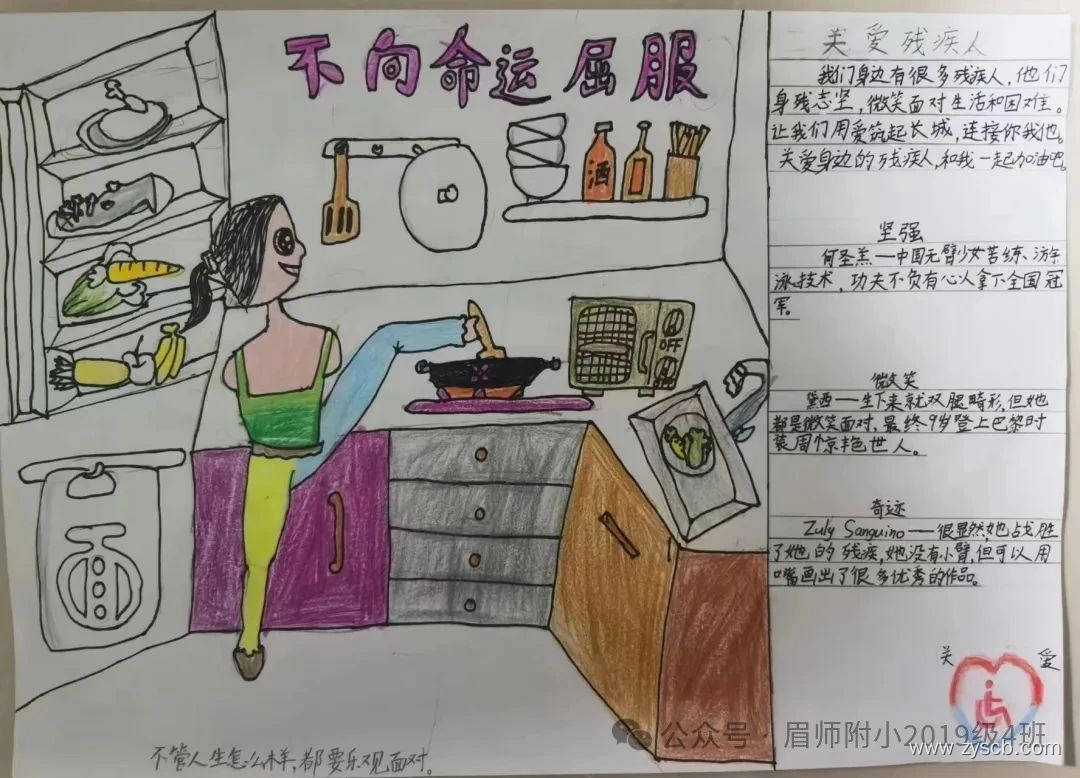 不向命运屈服
酒
OFF
不管人生怎么样，都要乐观面对。
关爱残疾人
我们身边有很多残疾人，他们
身残志坚，微笑面对生活和困难。
让我们用爱筑起长城，连接你我他。
关爱身边的残疾人，和我一起加油吧。
坚强
何圣羔—中国无臂少女苦练、游
泳技术，功夫不负有心人拿下全国冠
军。
微笑
黛西——生下来就双腿畸形，但她
都是微笑面对，最终9岁登上巴黎时
装周惊艳世人。
奇迹
Zuly Sanguino——很显然她占战胜
了她的残疾，她没有小臂，但可以用
嘴画出了很多优秀的作品。
关 爱
公众号·眉师附小2019级4班
www.zyscb.com